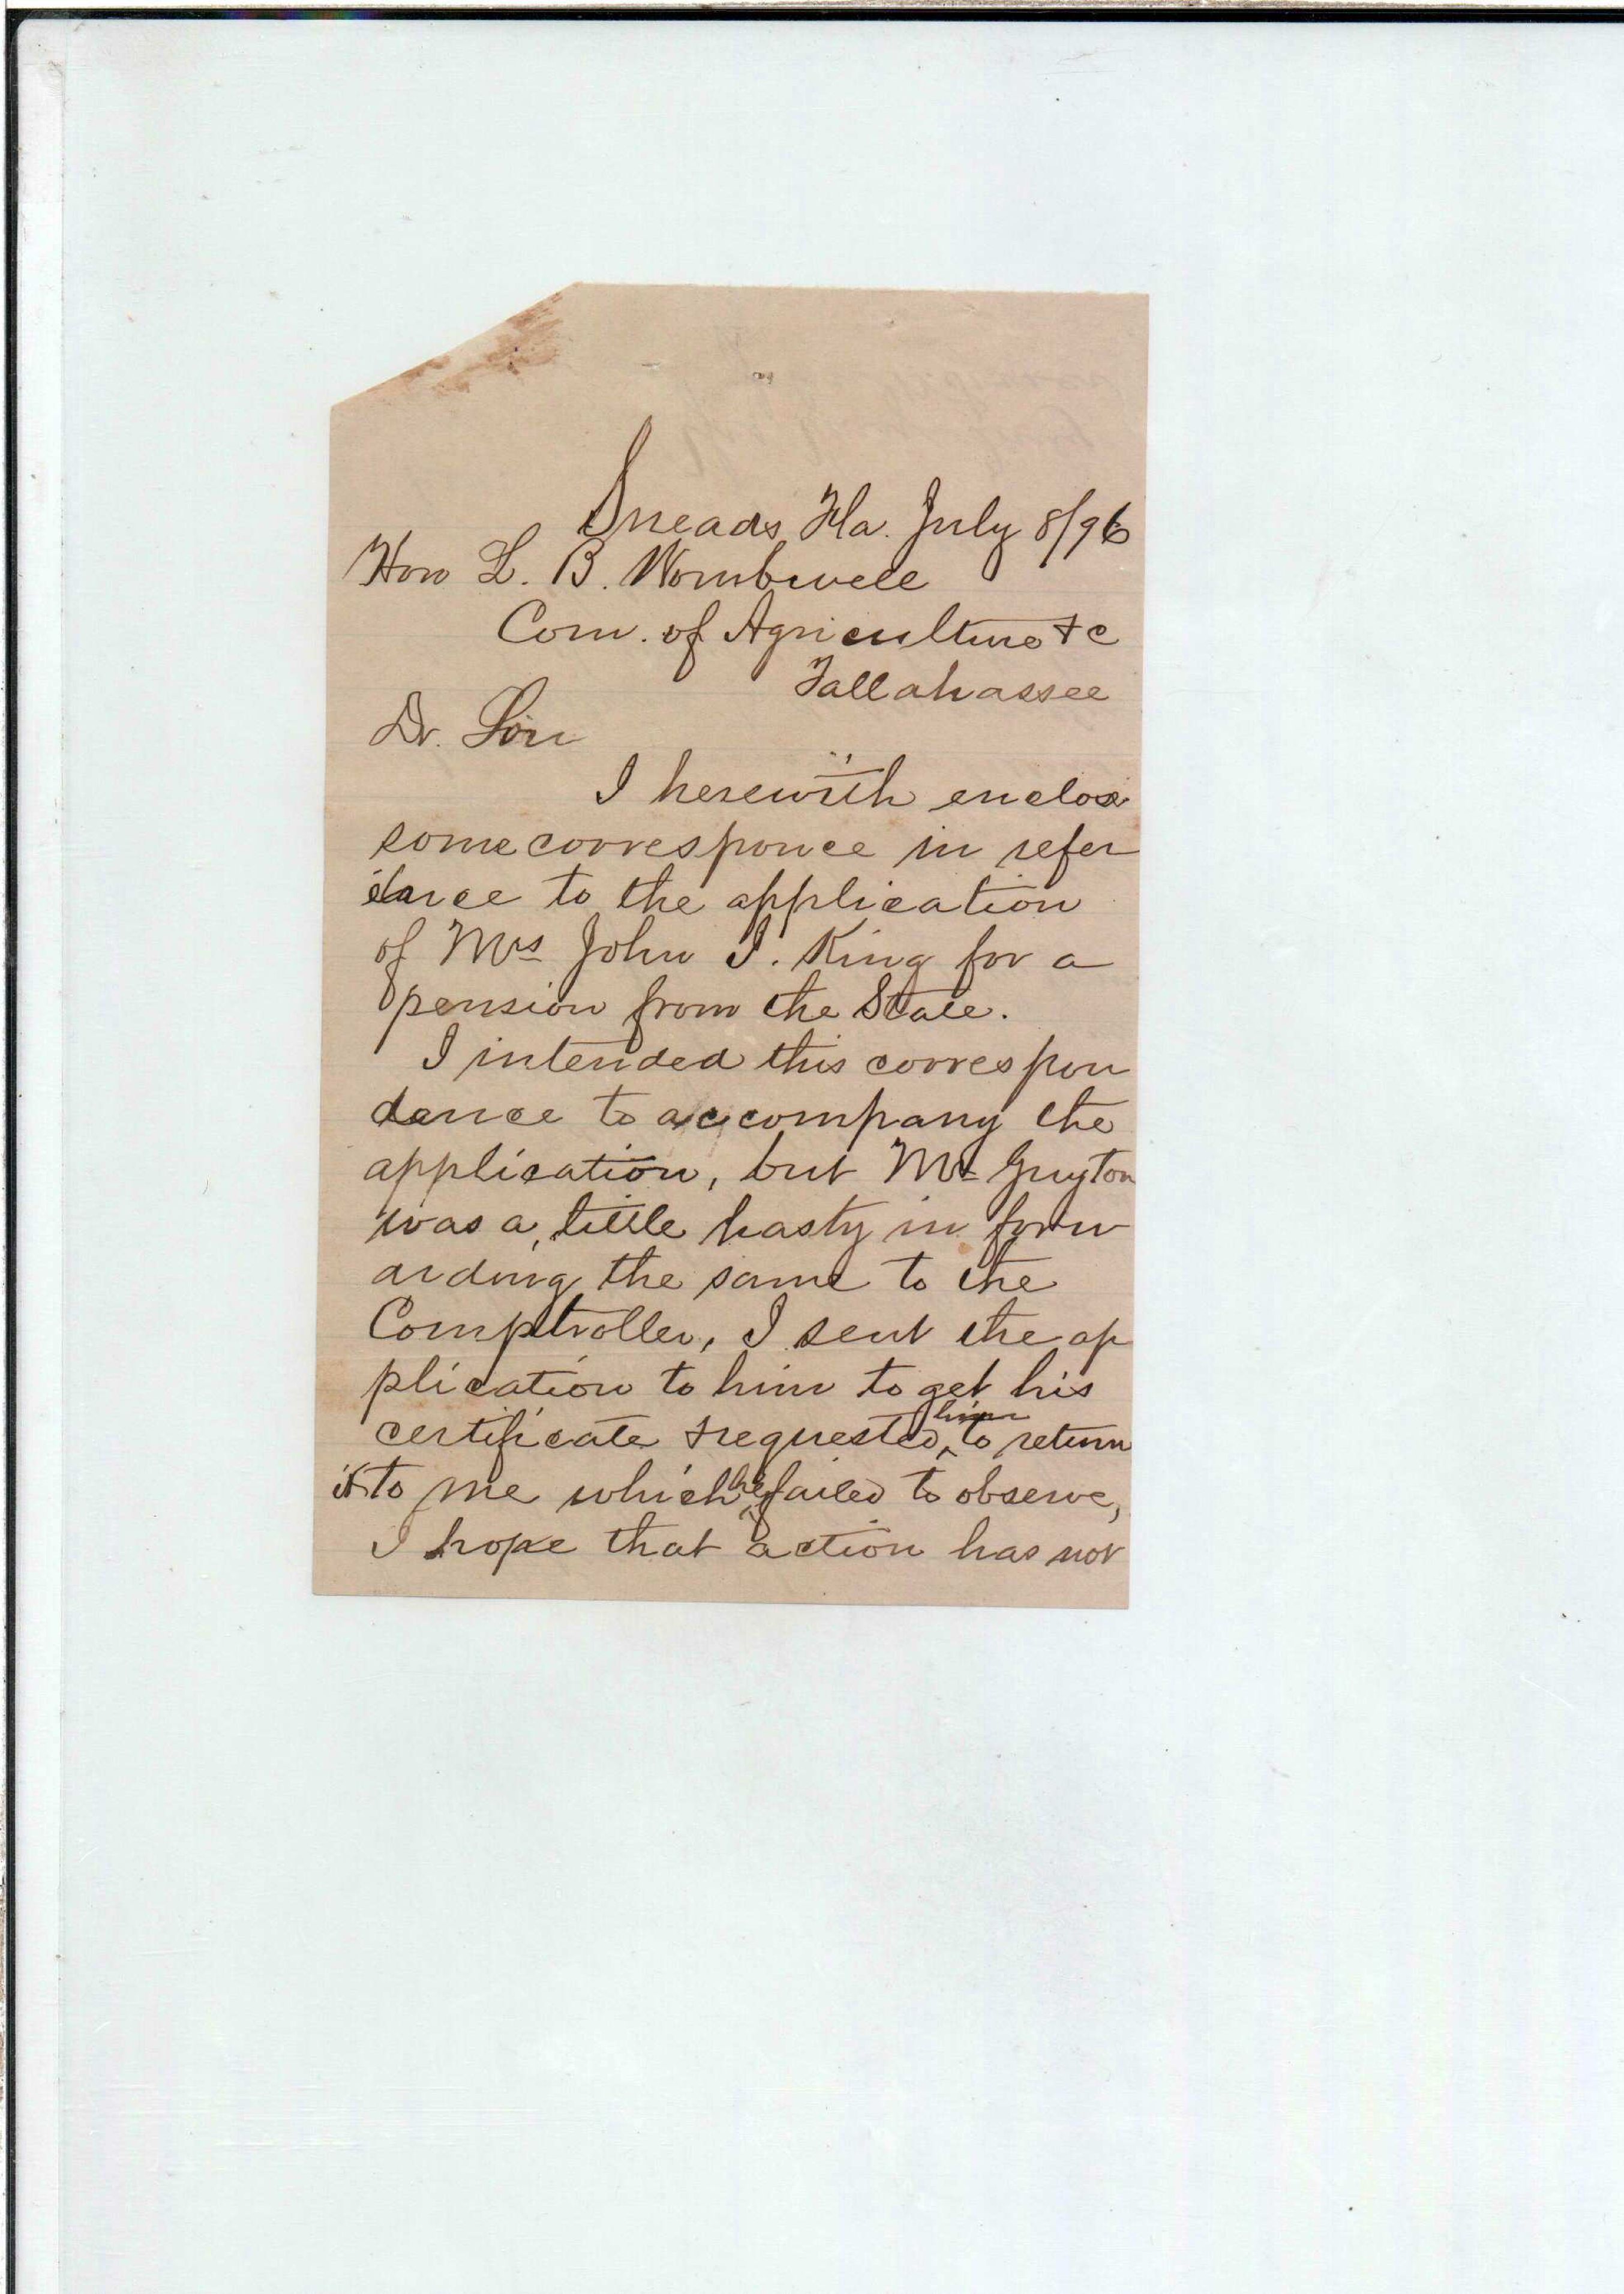 Sneads Fla. July 8/96
Hon L. B. Wombwell
Com. of Agriculture &c
Tallahassee
Dr. Sir
I herewith enclose
some corresponce in refer
ence to the application
of Mrs John I. King for a
pension from the State.
I intended this correspon
dance to accompany the
application, but Mr Guyton
was a little hasty in forw
arding the same to the
Comptroller, I sent the ap
plication to him to get his
certificate & requested him to return
it to me which he failed to observe,
I hope that action has not